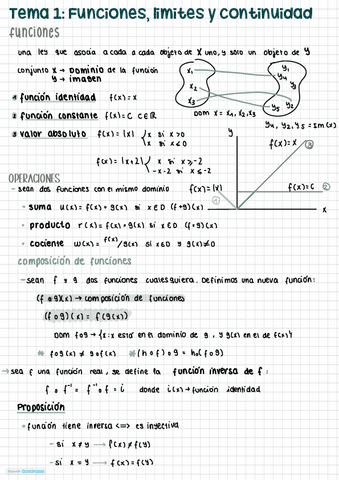 Tema 1: Funciones, limites y continuidad
funciones
una ley que asocia a cada a cada objeto de X uno, y sólo un objeto de Y
conjunto X → Dominio de la función
Y → imagen
x₁
x₂
x₃
y₁
y₄
y₃
y₅ y₂
Dom X = x₁, x₂, x₃
y₄, y₂, y₅ = Im(x)
① función identidad f(x) = X
② función constante f(x) = C C∈ℝ
③ valor absoluto f(x) = |x| { x si x>0
x si x<0
f(x) = |x+2| { x si x≥-2
-x-2 si x≤-2
y
f(x) = X
f(x)=|x|
f(x)=C
x
OPERACIONES
- sean dos funciones con el mismo dominio
• suma u(x) = f(x) + g(x) si x∈D (f+g)(x)
• producto r(x) = f(x) · g(x) si x∈D (f·g)(x)
• cociente w(x) = f(x)/g(x) si x∈D y g(x)≠0
composición de funciones
- sean f y g dos funciones cualesquiera. Definimos una nueva función:
(f o g)(x) → composición de funciones
(f o g)(x) = f(g(x))
Dom fog → {x: x está en el dominio de g, y g(x) en el de f(x)}
* fog(x) ≠ gof(x) * (hof)og = ho(fog)
→ sea f una función real, se define la función inversa de f:
f o f⁻¹ = f⁻¹ o f = i donde i(x) → función identidad
Proposición
• función tiene inversa <=> es inyectiva
- si x ≠ y → f(x) ≠ f(y)
- si x = y → f(x) = f(y)